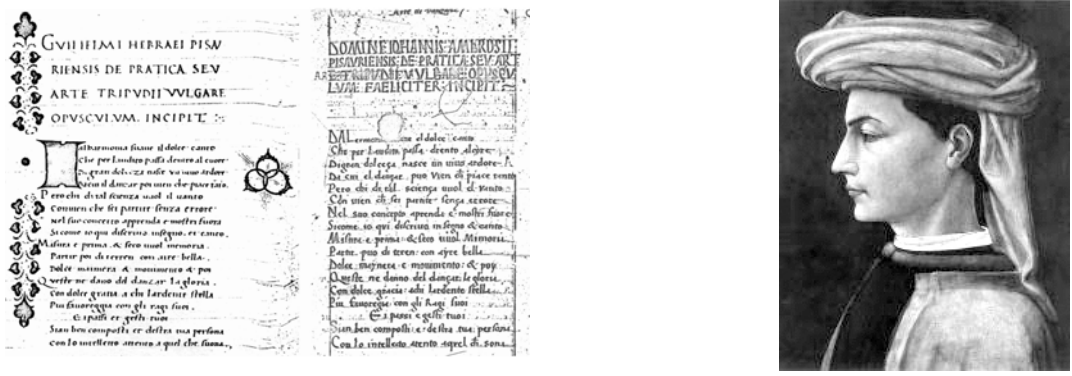 GVILIELMI HEBRAEI PISAV
RIENSIS DE PRATICA SEV
ARTE TRIPVDII VVLGARE
OPVSCVLVM. INCIPIT
al harmonia suave il dolce canto
Che per laudito passa dentro al cuore
Di gran dolcezza nasce un vivo ardore
Da cui il danzar poi vien che piace tanto
Pero chi di tal scienza vuol il vanto
Convien che sei partite senza errore
Nel suo concetto apprenda e mostri fuora
Si come io qui discrivo insegno et canto
Misura e prima & seco vuol memoria
Partir poi di terren con aire bella
Dolce maniera & movimento & poi
Queste ne dano del danzar la gloria
Con dolce gratia a chi lardente stella
Piu favoreggia con gli ragi suoi
E i passi et gesti tuoi
Sian ben composti et destra tua persona
Con lo intelletto attento a quel che suona
DOMINE IOHANNIS AMBROSII
PISAVRIENSIS DE PRATICA SEV ART
ARTE TRIPVDII VVLGARE OPVSCV
LVM FAELICITER INCIPIT
DAL el dolce canto
Che per laudito passa drento
Digran dolceça nasce un vivo ardore
Da cui el dançar poi vien di piace tanto
Pero chi di tal sciença vuol el vanto
Con vien di sei partite sença errore
Nel suo concepto aprenda e mostri fuore
Sicome io qui discrivo insegno & canto
Misura e prima & seco vuol Memoria
Partir poi di teren con ayre bella
Dolce maynera e movimento & poi
Queste ne danno del dançar la gloria
Con dolce gracia achi lardente stella
Piu favoregia con gli Ragi suoi
E i passi e gesti tuoi
Sian ben composti e destra tua persona
Con lo intellecto atento aquel di sona